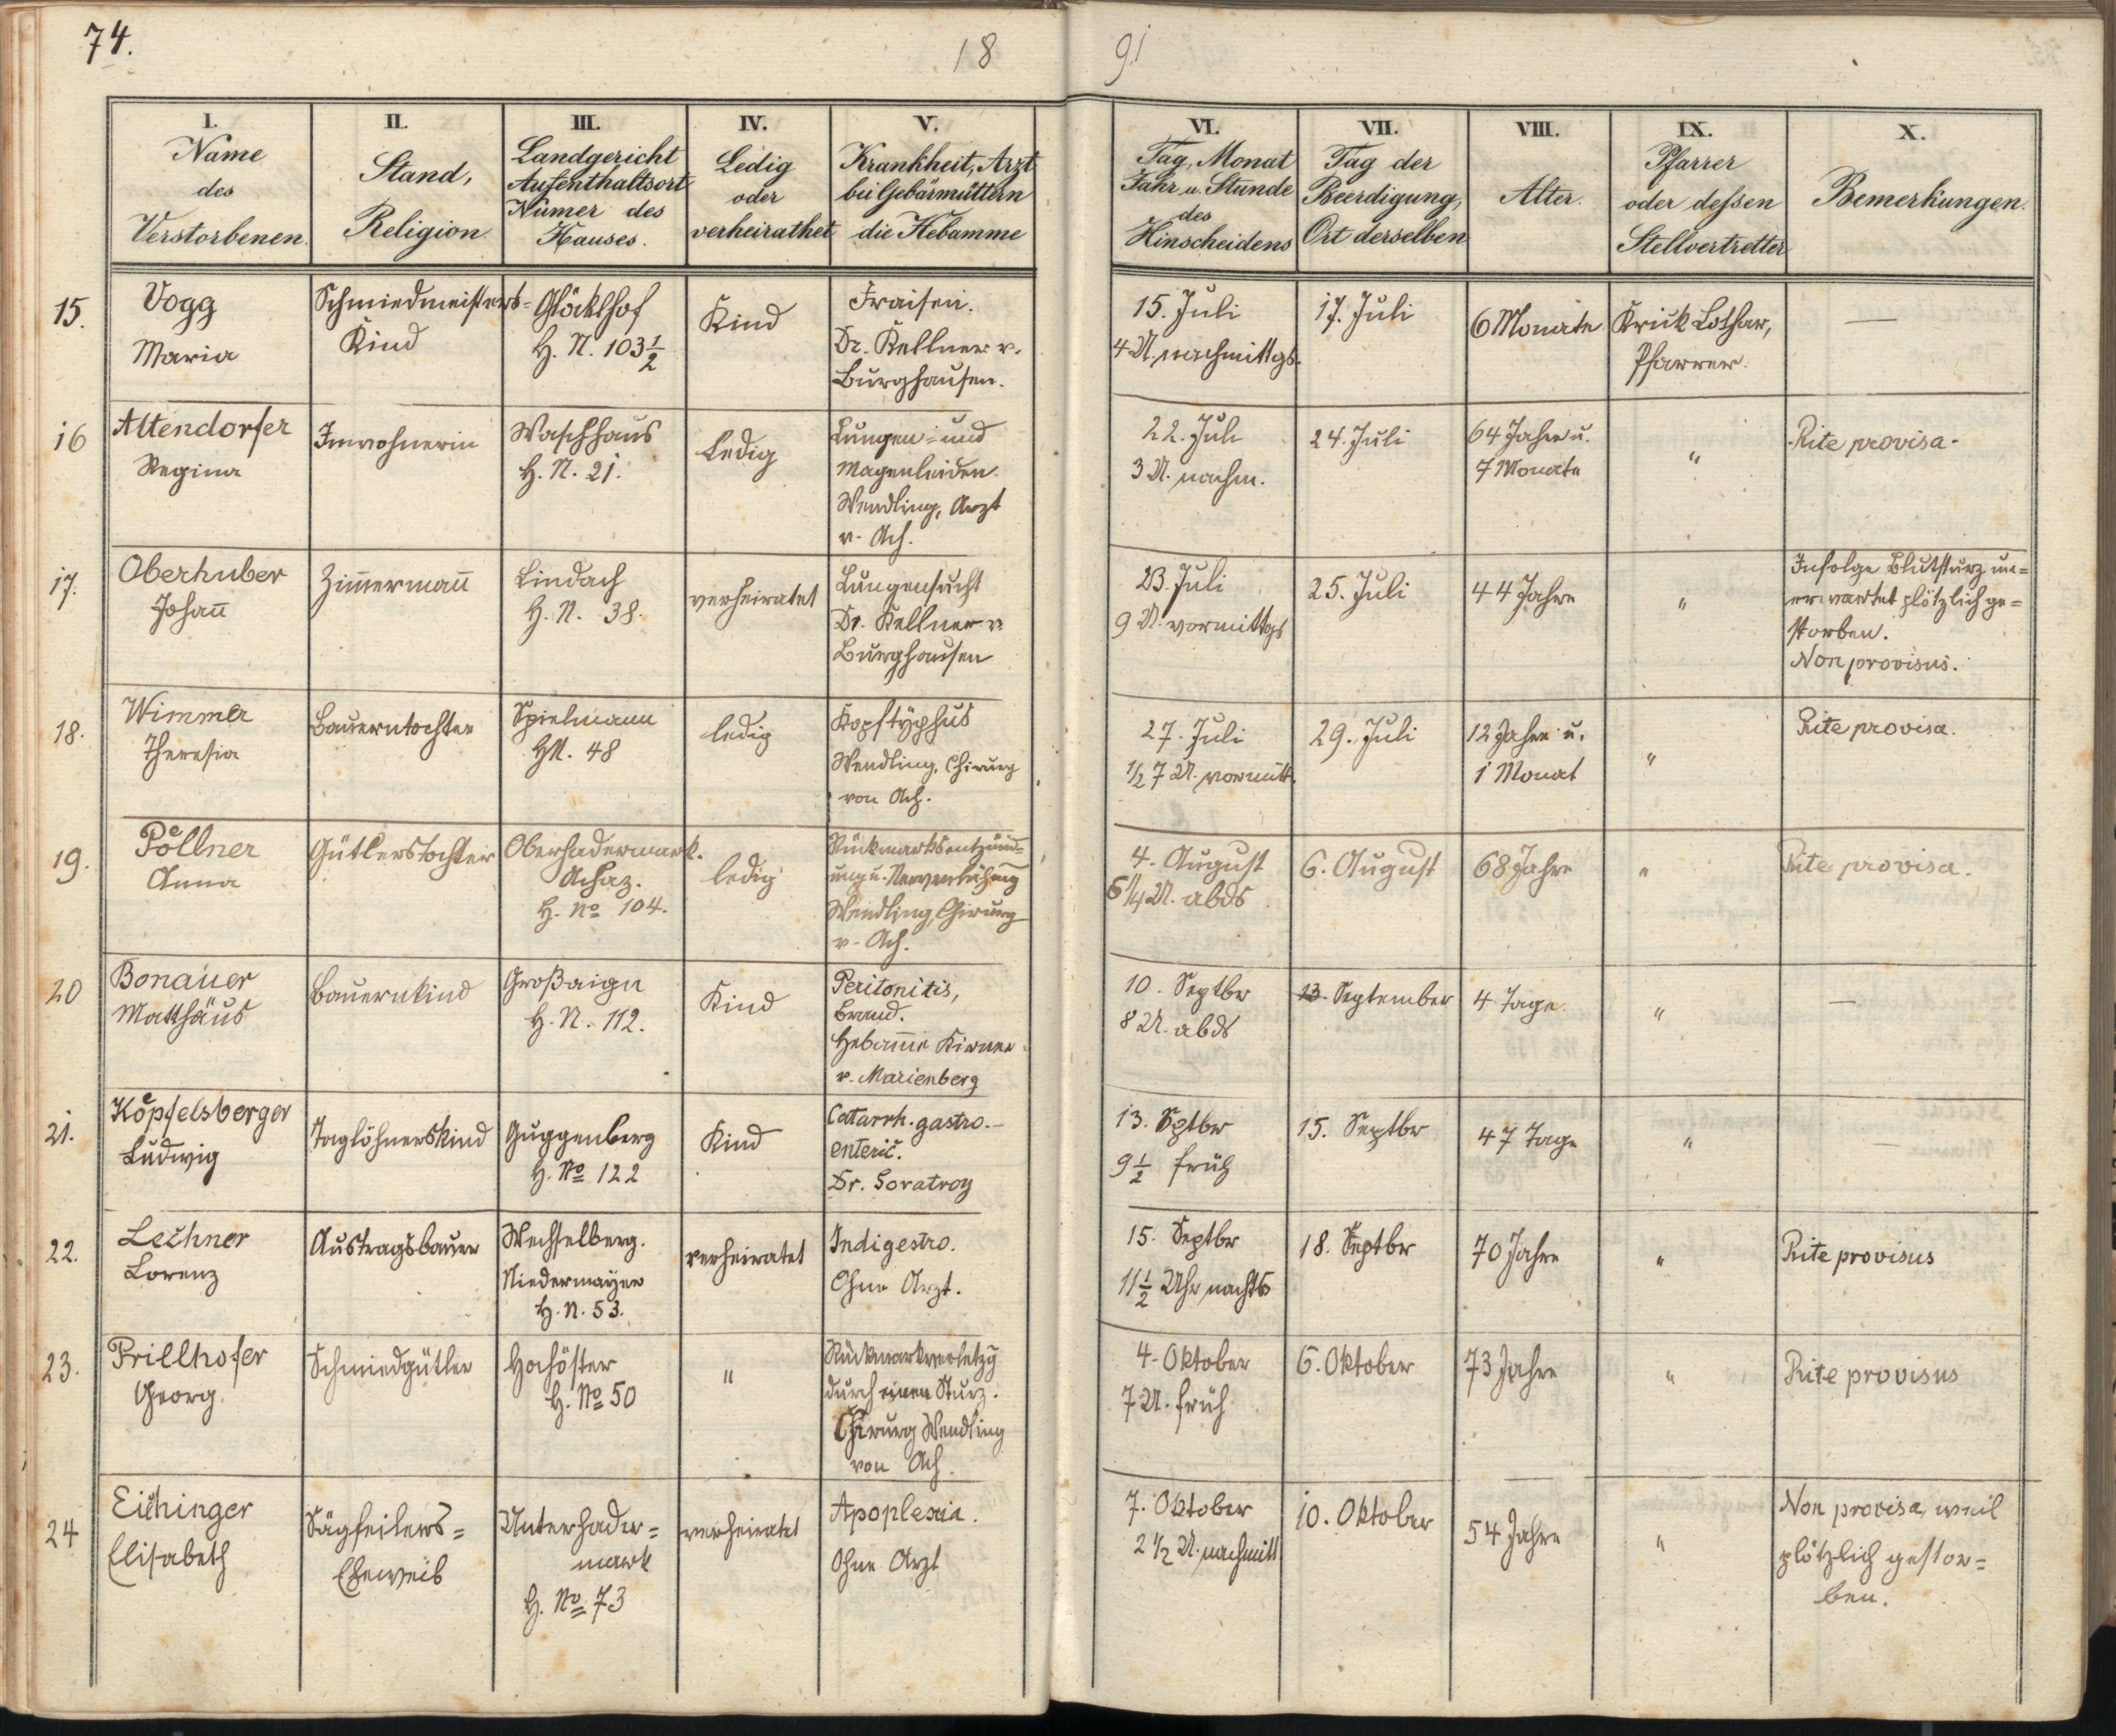 74.
18
91
I.
Name
des
Verstorbenen.
II.
Stand,
Religion.
III.
Landgericht
Aufenthaltsort
Numer des
Hauses.
IV.
Ledig
oder
verheirathet
V.
Krankheit, Arzt
bei Gebärmüttern
die Hebamme
VI.
Tag, Monat
Jahr u. Stunde
des
Hinscheidens
VII.
Tag der
Beerdigung,
Ort derselben
VIII.
Alter.
IX.
Pfarrer
oder deßen
Stellvertretter
X.
Bemerkungen.
15.
Vogg
Maria
Schmiedmeisters-
Kind
Glöcklhof
H. N. 103 1/2
Kind
Fraisen.
Dr. Kellner v.
Burghausen.
15. Juli
4 U. nachmittgs.
17. Juli
6 Monate
Krick Lothar,
Pfarrer.
—
16
Altendorfer
Regina
Inwohnerin
Waschhaus
H. N. 21.
Ledig
Lungen- und
Magenleiden.
Wendling, Arzt
v. Ach.
22. Juli
3 U. nachm.
24. Juli
64 Jahre u.
7 Monate
"
Rite provisa.
17.
Oberhuber
Johan̄
Zim̄erman̄
Lindach
H. N. 38.
verheiratet
Lungensucht
Dr. Kellner v.
Burghausen
23. Juli
9 U. vormittgs
25. Juli
44 Jahre
"
Infolge Blutsturz un=
erwartet plötzlich ge=
storben.
Non provisus.
18.
Wimmer
Theresia
Bauerntochter
Spielmann
HN. 48
ledig
Kopftyphus
Wendling, Chirurg
von Ach.
27. Juli
1/2 7 U. vormitt.
29. Juli
12 Jahre u.
1 Monat
"
Rite provisa.
19.
Poͤllner
Anna
Gütlerstochter
Oberhadermark.
Achaz.
H. No 104.
ledig
Rückmarksentzünd=
ung u. Nervenlähmg
Wendling, Chirurg
v. Ach.
4. August
6 1/4 U. abds
6. August
68 Jahre
"
Rite provisa.
20
Bonauer
Matthäus
Bauernkind
Großaign
H. N. 112.
Kind
Peritonitis,
Brand.
Hebam̄e Kirner
v. Marienberg
10. Septbr
8 U. abds
13. September
4 Tage
"
—
21.
Koͤpfelsberger
Ludwig
Taglöhnerskind
Guggenberg
H. No 122
Kind
Catarrh. gastro.-
enteric.
Dr. Soratroy
13. Sptbr
9 1/2 früh
15. Septbr
47 Tage
"
—
22.
Lechner
Lorenz
Austragsbauer
Wechselberg.
Niedermayer
H. N. 53.
verheiratet
Indigestro.
Ohne Arzt.
15. Septbr
11 1/2 Uhr nachts
18. Septbr
70 Jahre
"
Rite provisus
23.
Prillhofer
Georg
Schmiedgütler
Hochöster
H. No 50
"
Rückmarkverletzg
durch einen Sturz.
Chirurg Wendling
von Ach
4. Oktober
7 U. früh
6. Oktober
73 Jahre
"
Rite provisus
24
Eichinger
Elisabeth
Sägfeilers=
Eheweib
Unterhader=
mark
H. No 73
verheiratet
Apoplexia.
Ohne Arzt
7. Oktober
2 1/2 U. nachmitt
10. Oktober
54 Jahre
"
Non provisa, weil
plötzlich gestor=
ben.